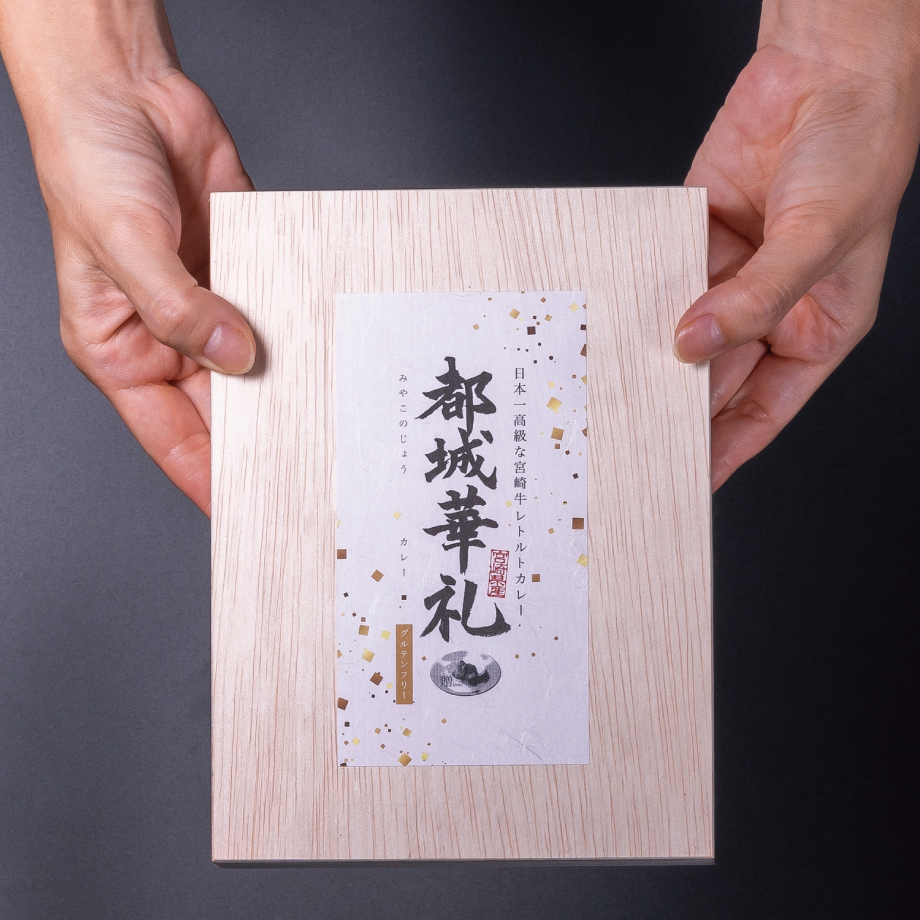 日本一高級な宮崎牛レトルトカレー
都城華礼
宮崎県産
みやこのじょう　カレー
グルテンフリー
贈